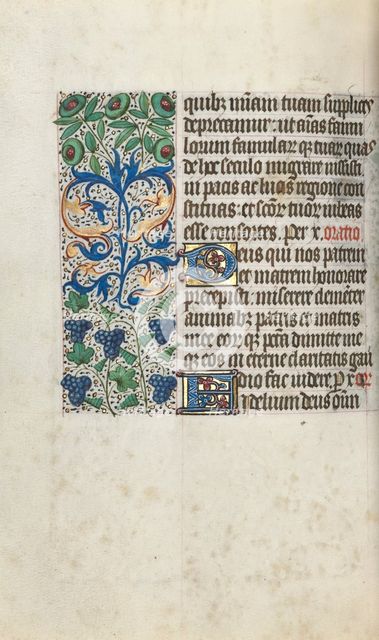 quibz miam tuam supplices
deprecamur. ut aias famu
lorum famular qz tuar quas
de hoc seculo migrare iussisti
in pacis ac lucis regione con
stituas et scor tuor iubeas
esse consortes. Per x. oratio
Deus qui nos patrem
et matrem honorare
precepisti. miserere clementer
animabz patris et matris
mee eorz qz pcta dimitte me
qz eos in eterne claritatis gau
dio fac videre. p x or
Fidelium deus oim